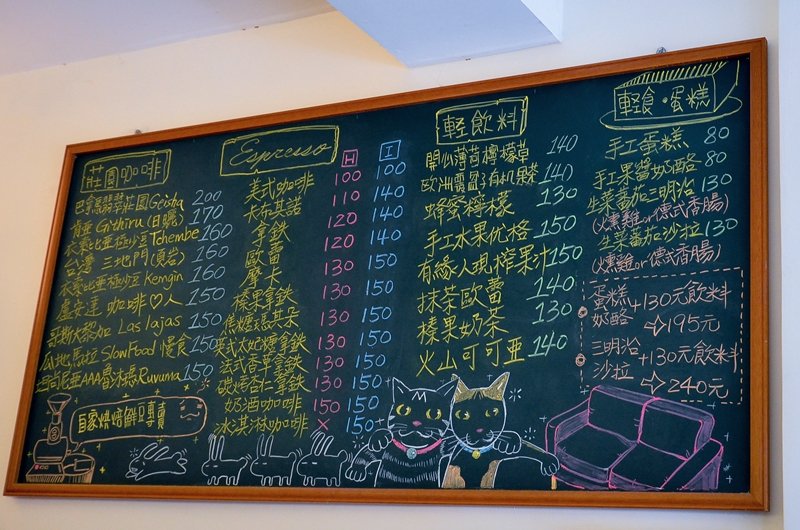 莊園咖啡
巴拿馬翡翠莊園Geisha 200
肯亞Githiru(日曬) 170
衣索比亞極沙豆Tchembe 160
台灣 三地門(頂岩) 160
衣索比亞極沙豆Kemgin 150
盧安達 咖啡♡人 150
哥斯大黎加 Las lajas 150
瓜地馬拉 SlowFood 慢食 150
AAA Ruvuma 150
自家烘焙鮮豆專賣
Espresso H I
美式咖啡 100 100
卡布其諾 110 140
拿鐵 120 140
歐蕾 120 140
摩卡 130 150
榛果拿鐵 130 150
焦糖瑪其朵 130 150
美式太妃糖拿鐵 130 150
法式香草拿鐵 130 150
碳烤杏仁拿鐵 130 150
奶酒咖啡 150 150
冰淇淋咖啡 × 150
輕飲料
開心薄荷檸檬草 140
歐洲覆盆子有机果茶 140
蜂蜜檸檬 130
手工水果优格 150
有緣人現榨果汁 150
抹茶歐蕾 140
榛果奶茶 130
火山可可亞 140
輕食·蛋糕
手工蛋糕 80
手工果醬奶酪 80
生菜蕃茄三明治 130
(火燻雞or德式香腸)
生菜蕃茄沙拉 130
(火燻雞or德式香腸)
蛋糕
奶酪 +130元飲料
⇨195元
三明治
沙拉 +130元飲料
⇨240元